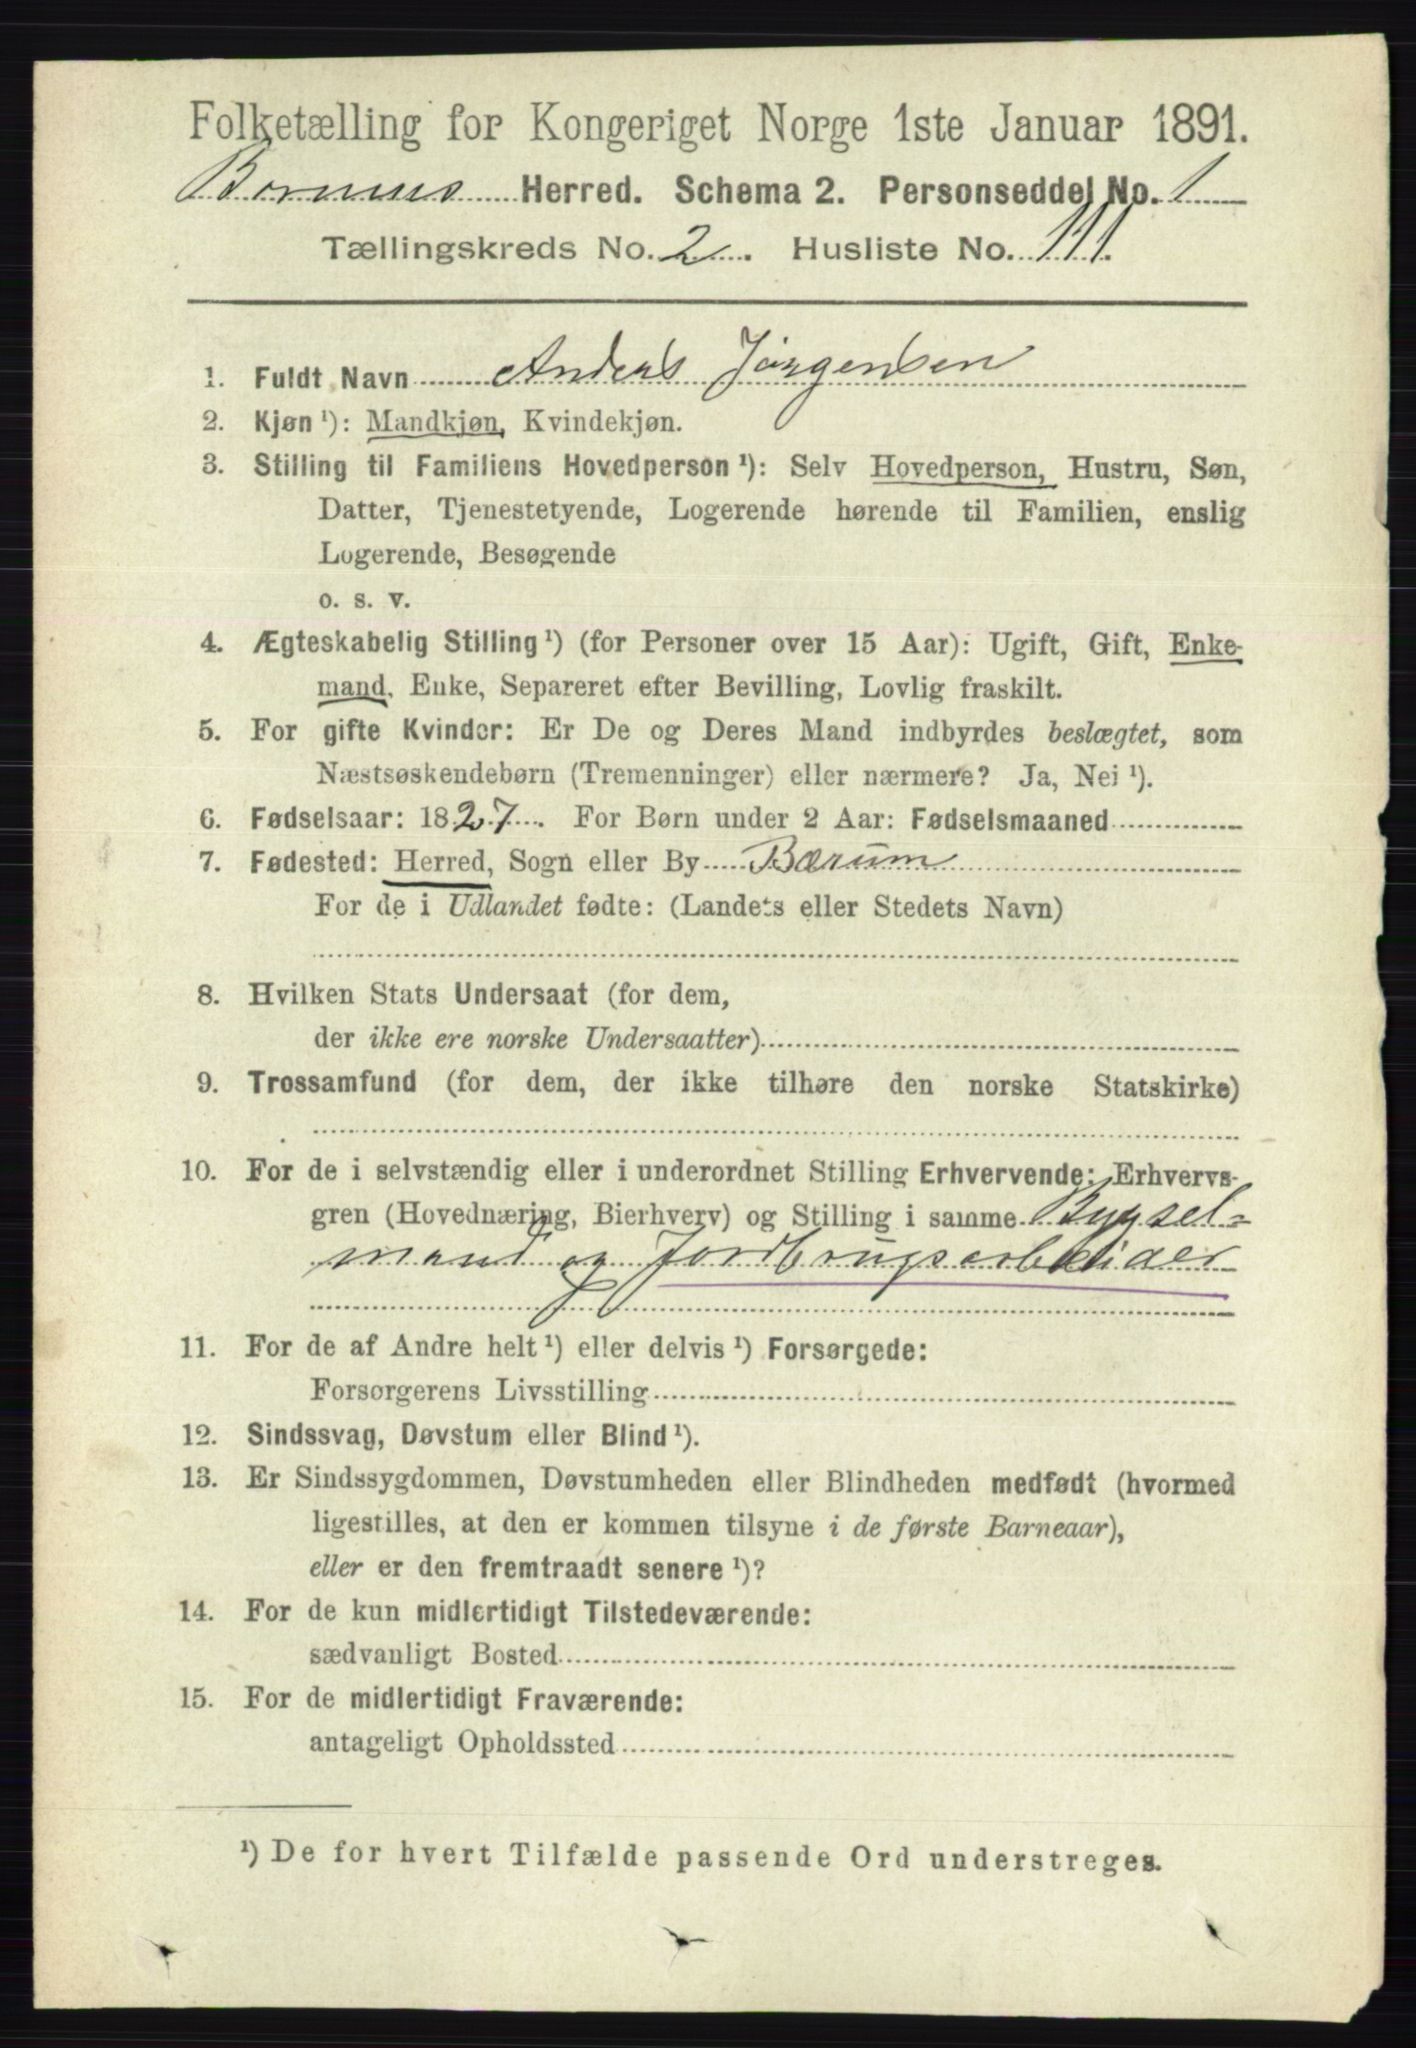 Folketælling for Kongeriget Norge 1ste Januar 1891.
Bærums Herred. Schema 2. Personseddel No. 1
Tællingskreds No. 2. Husliste No. 111.
1. Fuldt Navn Anders Jørgensen
2. Kjøn ¹): Mandkjøn, Kvindekjøn.
3. Stilling til Familiens Hovedperson ¹): Selv Hovedperson, Hustru, Søn,
Datter, Tjenestetyende, Logerende hørende til Familien, enslig
Logerende, Besøgende
o. s. v.
4. Ægteskabelig Stilling ¹) (for Personer over 15 Aar): Ugift, Gift, Enke-
mand, Enke, Separeret efter Bevilling, Lovlig fraskilt.
5. For gifte Kvinder: Er De og Deres Mand indbyrdes beslægtet, som
Næstsøskendebørn (Tremenninger) eller nærmere? Ja, Nei ¹).
6. Fødselsaar: 1827. For Børn under 2 Aar: Fødselsmaaned
7. Fødested: Herred, Sogn eller By Bærum
For de i Udlandet fødte: (Landets eller Stedets Navn)
8. Hvilken Stats Undersaat (for dem,
der ikke ere norske Undersaatter)
9. Trossamfund (for dem, der ikke tilhøre den norske Statskirke)
10. For de i selvstændig eller i underordnet Stilling Erhvervende: Erhvervs-
gren (Hovednæring, Bierhverv) og Stilling i samme Bygsel-
mand og Jordbrugsarbeider
11. For de af Andre helt ¹) eller delvis ¹) Forsørgede:
Forsørgerens Livsstilling
12. Sindssvag, Døvstum eller Blind ¹).
13. Er Sindssygdommen, Døvstumheden eller Blindheden medfødt (hvormed
ligestilles, at den er kommen tilsyne i de første Barneaar),
eller er den fremtraadt senere ¹)?
14. For de kun midlertidigt Tilstedeværende:
sædvanligt Bosted
15. For de midlertidigt Fraværende:
antageligt Opholdssted
¹) De for hvert Tilfælde passende Ord understreges.